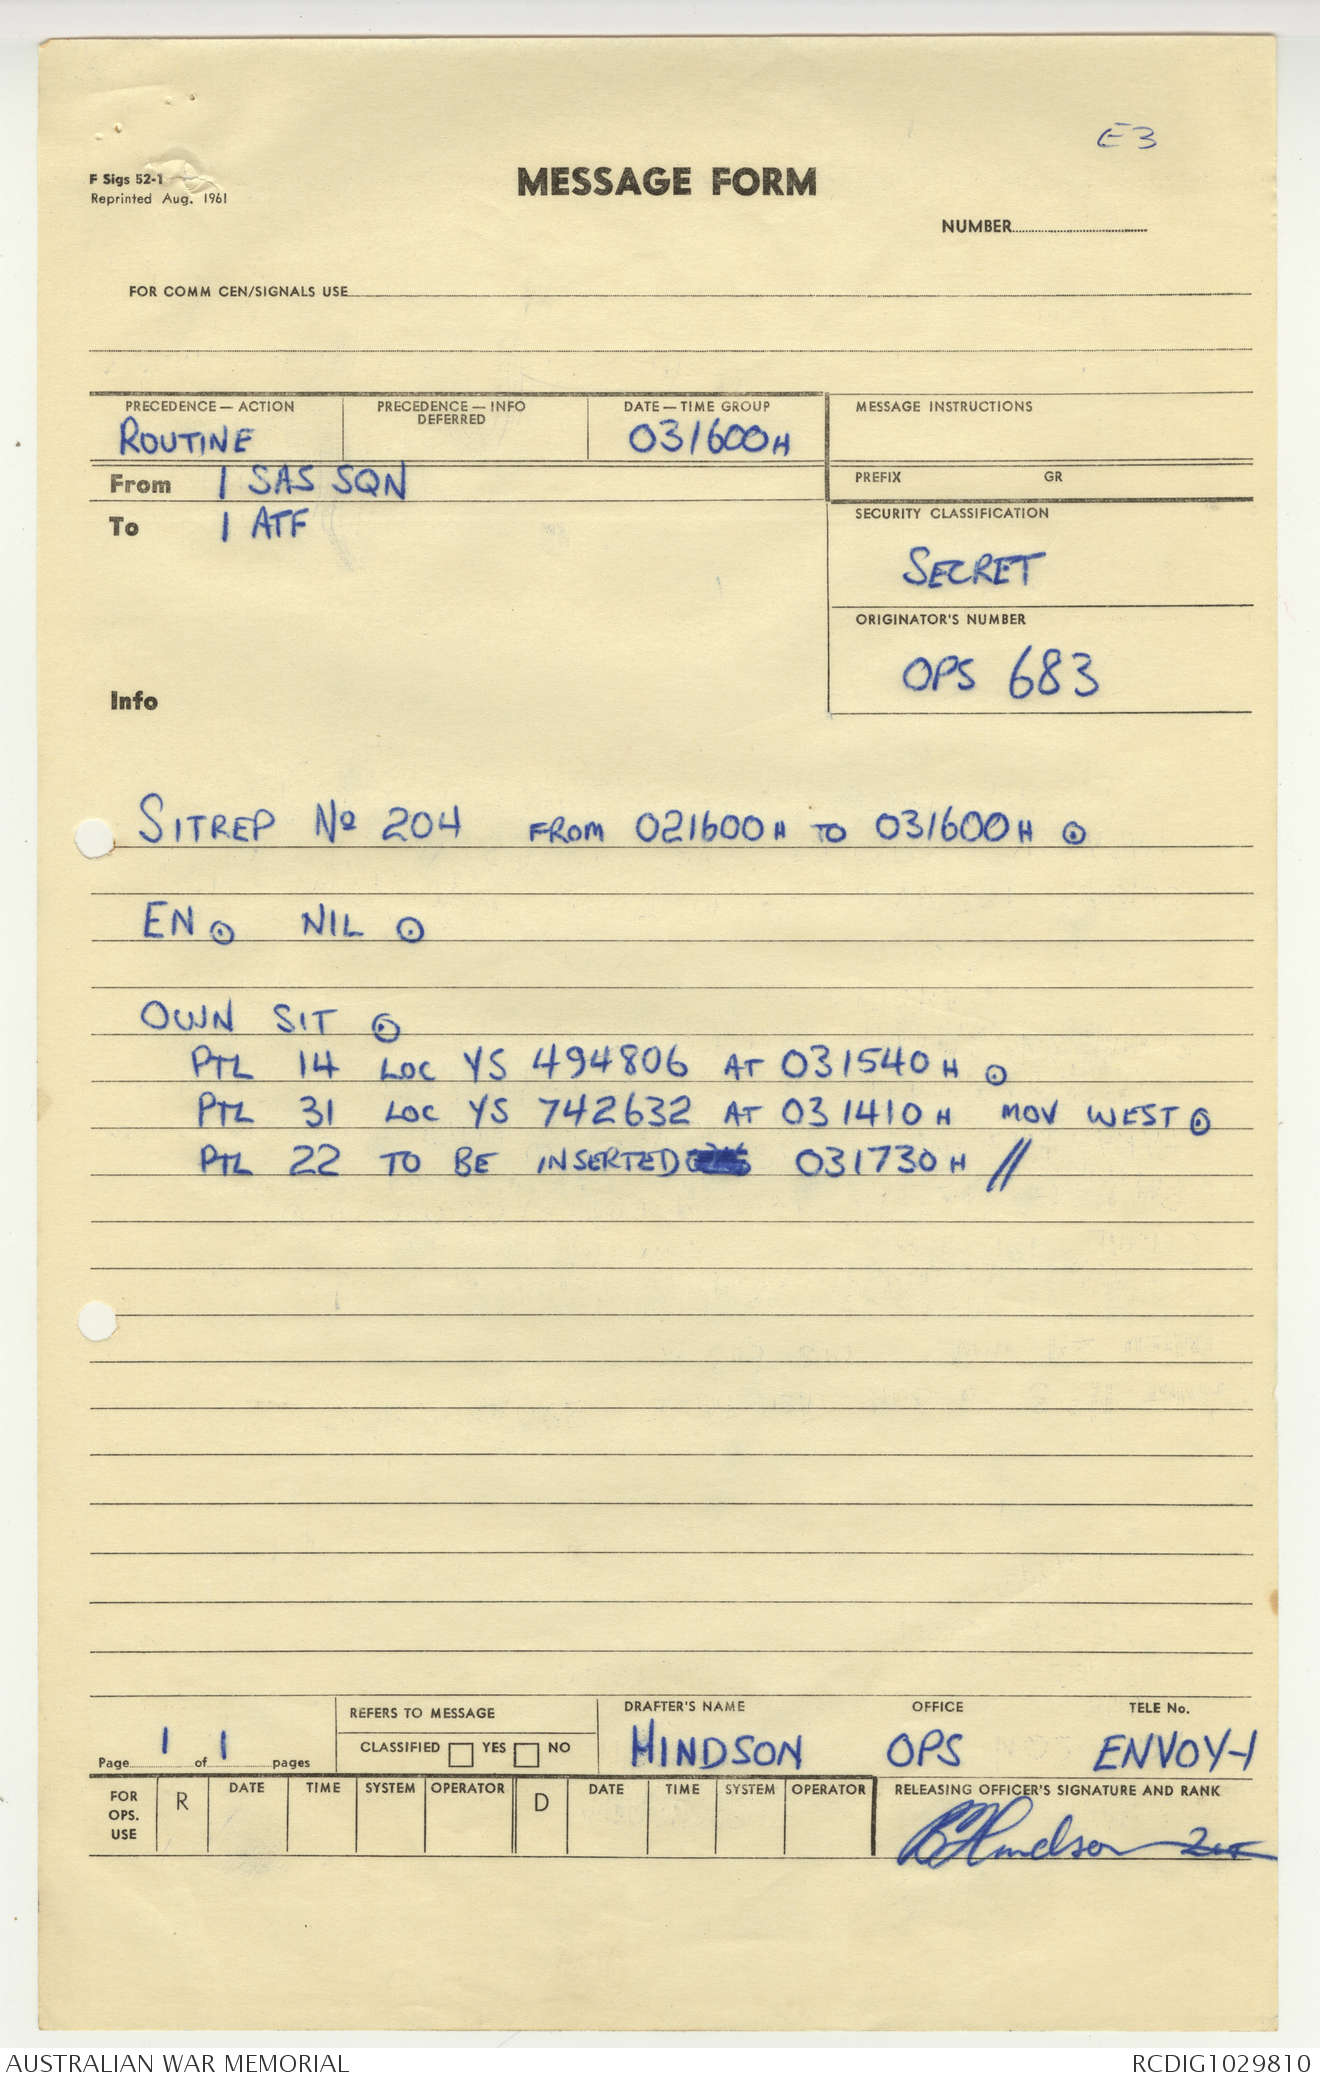 E3
F Sigs 52-1
Reprinted Aug. 1961
MESSAGE FORM
NUMBER
FOR COMM CEN/SIGNALS USE
PRECEDENCE — ACTION
ROUTINE
PRECEDENCE — INFO
DEFERRED
DATE — TIME GROUP
031600H
MESSAGE INSTRUCTIONS
From 1 SAS SQN
PREFIX GR
To 1 ATF
SECURITY CLASSIFICATION
SECRET
ORIGINATOR'S NUMBER
OPS 683
Info
SITREP No 204 FROM 021600H TO 031600H ⊙
EN ⊙ NIL ⊙
OWN SIT ⊙
PTL 14 LOC YS 494806 AT 031540H ⊙
PTL 31 LOC YS 742632 AT 031410H MOV WEST ⊙
PTL 22 TO BE INSERTED 031730H //
Page 1 of 1 pages
REFERS TO MESSAGE
CLASSIFIED YES NO
DRAFTER'S NAME
HINDSON
OFFICE
OPS
TELE No.
ENVOY-1
FOR OPS. USE
R DATE TIME SYSTEM OPERATOR
D DATE TIME SYSTEM OPERATOR
RELEASING OFFICER'S SIGNATURE AND RANK
Hindson
AUSTRALIAN WAR MEMORIAL
RCDIG1029810